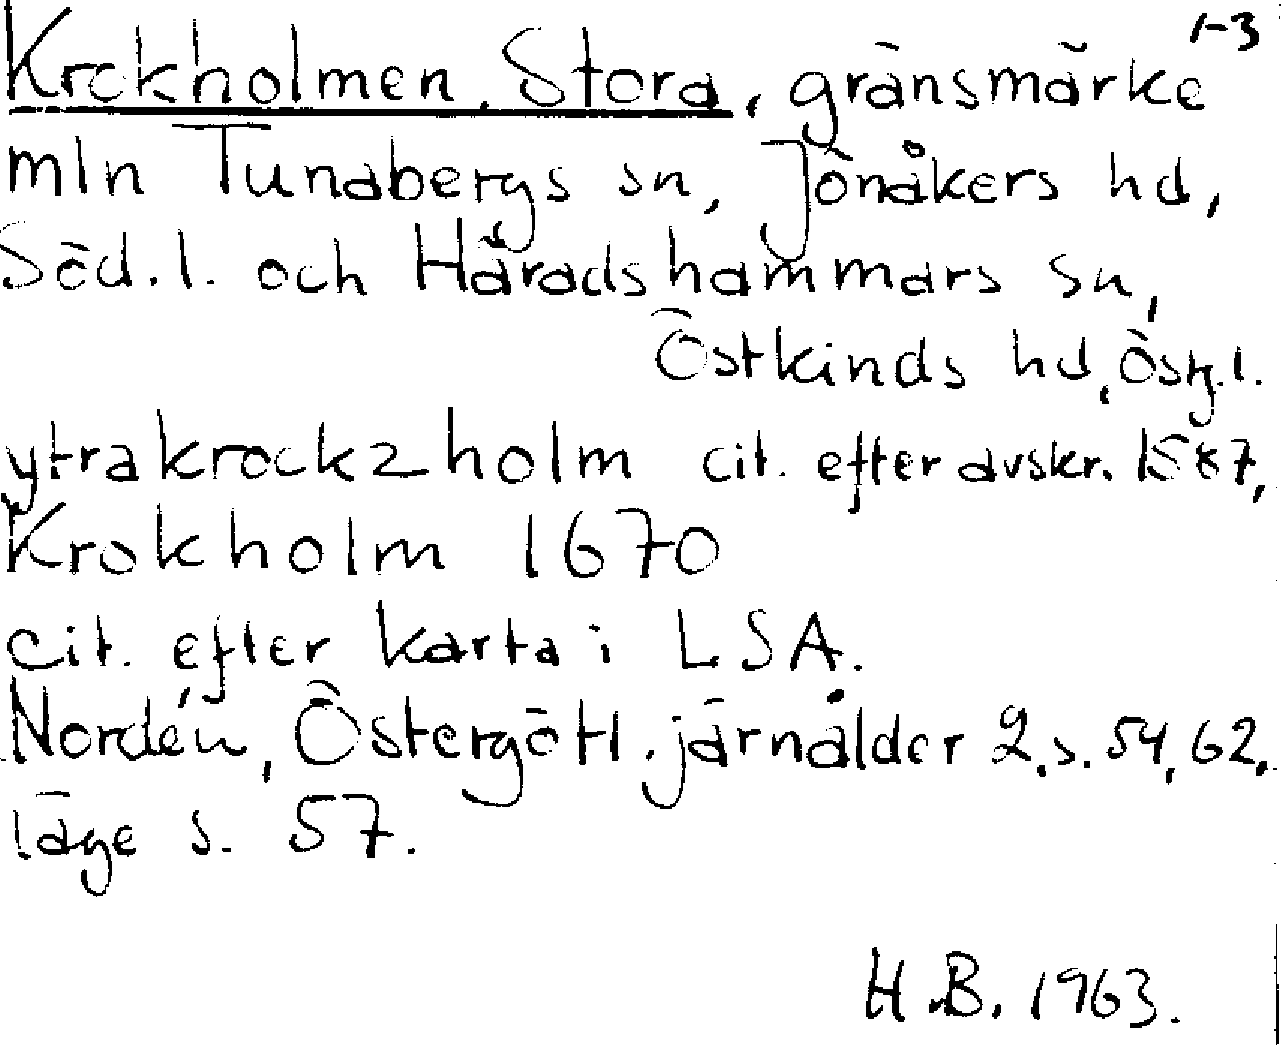 1-3
Krokholmen, Stora, gränsmärke
mln Tunabergs sn, Jönåkers hd,
Söd.l. och Häradshammars sn,
Östkinds hd, Östg.l.
ytrakrockzholm cit. efter avskr. 1587,
Krokholm 1670
cit. efter karta i LSA.
Nordén, Östergötl. järnålder 2. s. 54, 62.
läge s. 57.
H.B. 1963.